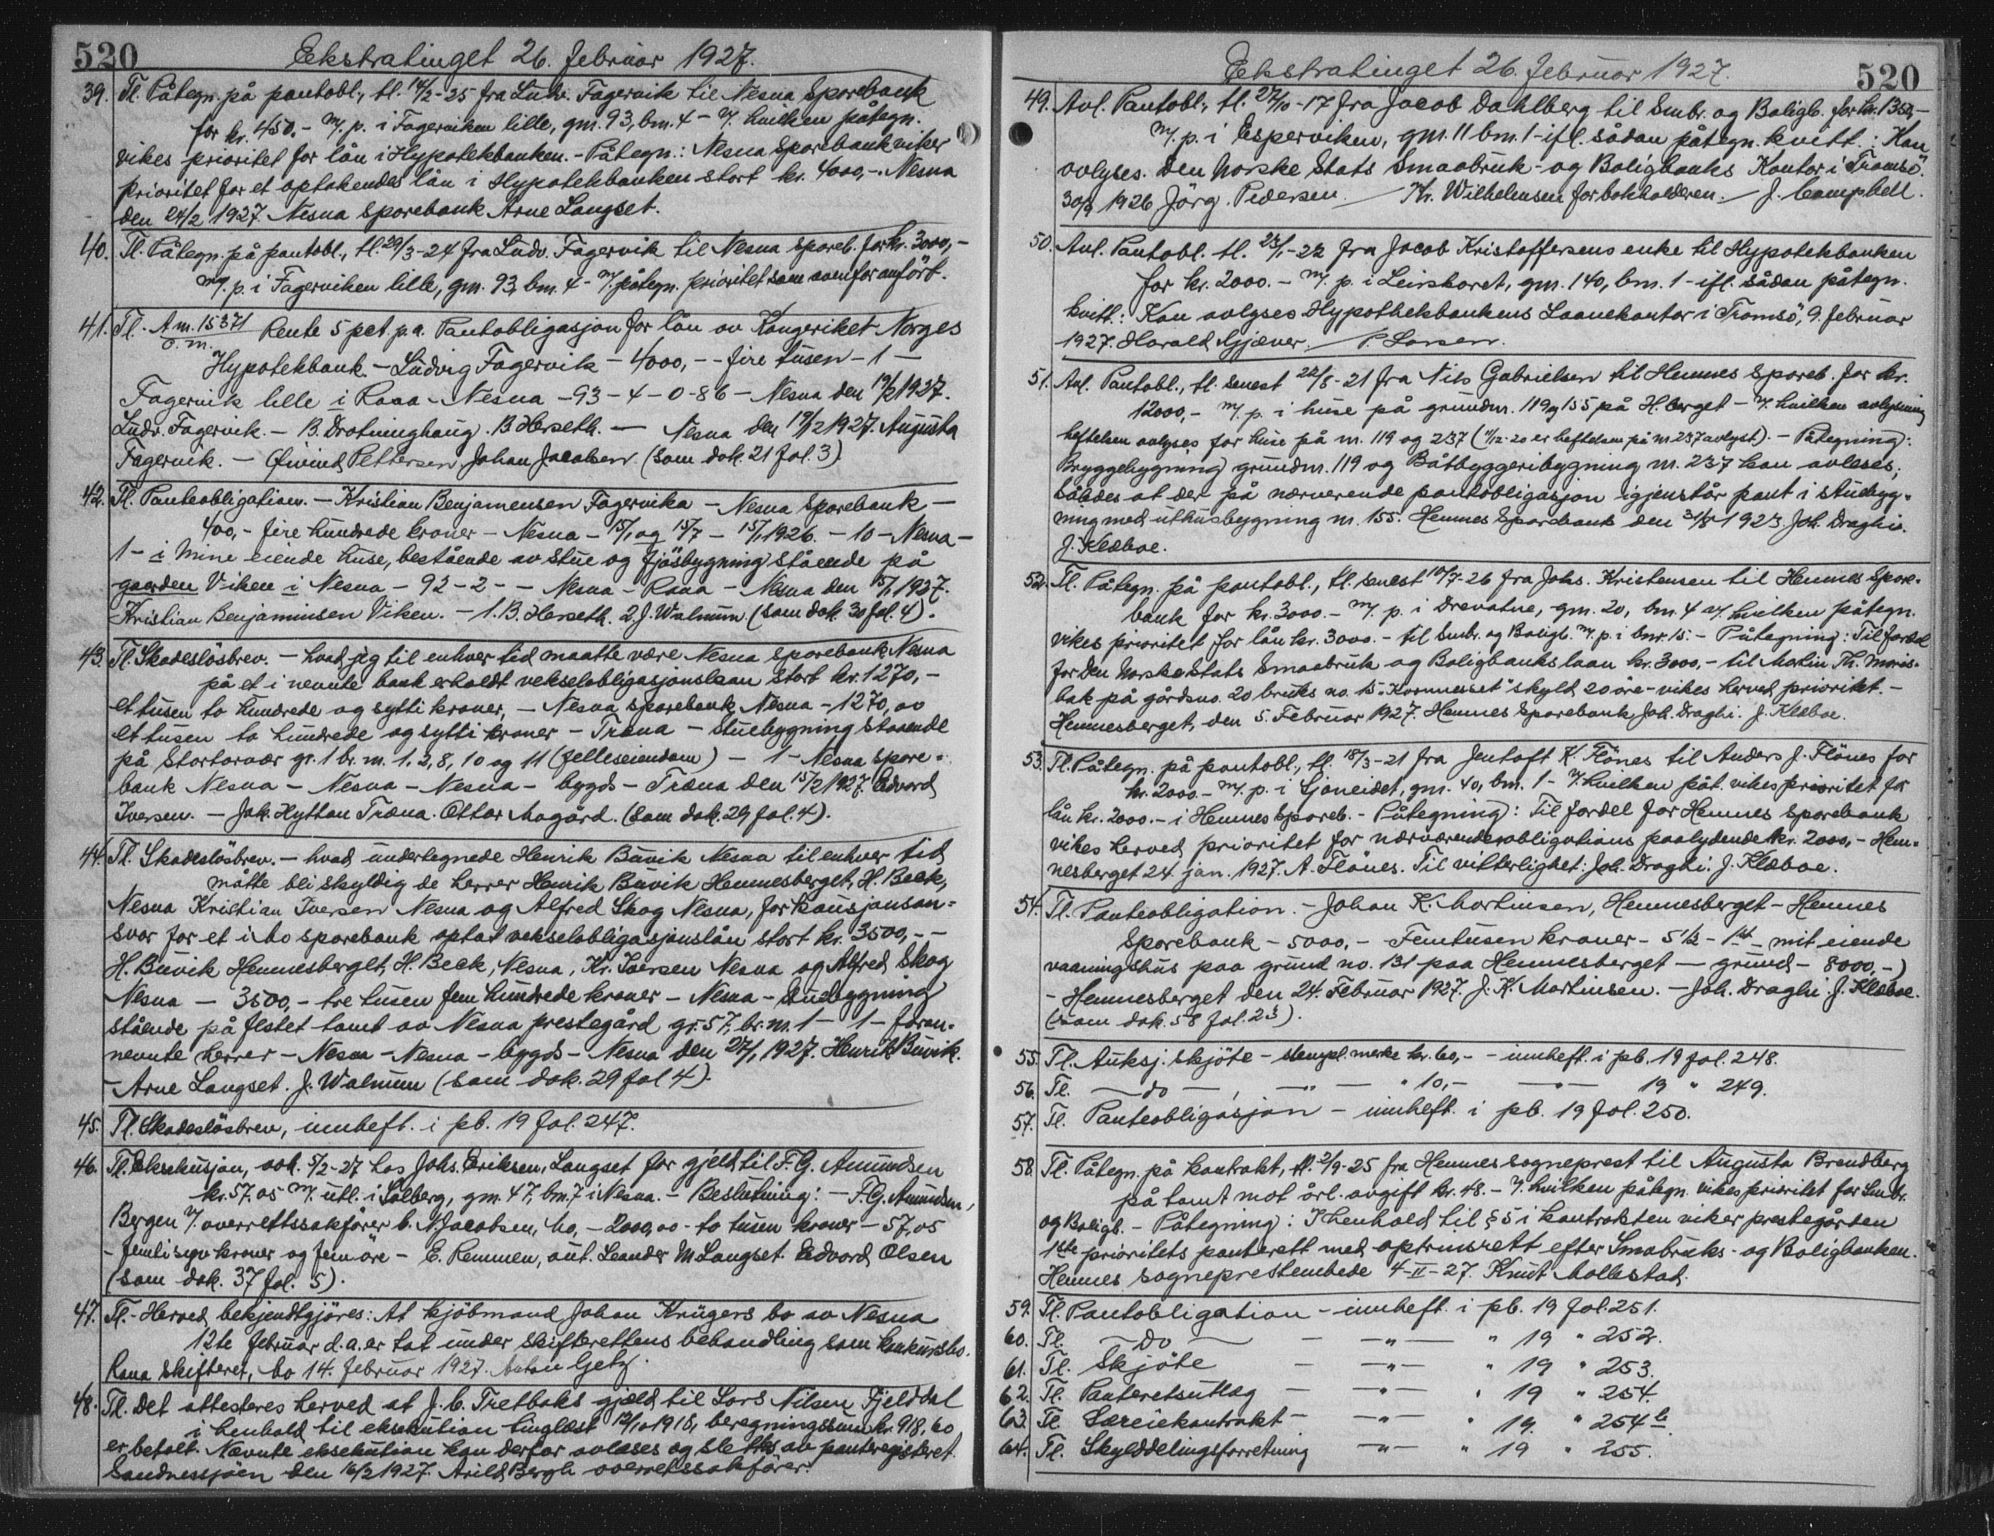 520
Ekstratinget 26. februar 1927.
39. Tl. Påtegn. på pantobl., tl. 14/2-25 fra Ludv. Fagervik til Nesna Sparebank
for kr. 450.- m/. p. i Fagerviken lille, gm. 93, bm. 4 - v/. hvilken påtegn.
vikes prioritet for lån i Hypotekbanken. - Påtegn.: Nesna Sparebank viker
prioritet for et optakendes lån i Hypotekbanken stort kr. 4000,- Nesna
den 24/2 1927. Nesna Sparebank Arne Langset.
40. Tl. Påtegn. på pantobl., tl. 29/3-24 fra Ludv. Fagervik til Nesna Spareb. for kr. 3000,-
m/. p. i Fagerviken lille, gm. 93, bm. 4 - v/. påtegn. prioritet som ovenfor anført.
41. Tl. A m. 15371 Rente 5 pct. p.a. Pantobligasjon for lån av Kongeriket Norges
o. m.
Hypotekbank - Ludvig Fagervik - 4000,- - fire tusen - 1 -
Fagervik lille i Rana - Nesna - 93 - 4 - 0-86 - Nesna den 19/2 1927.
Ludv. Fagervik. - B. Drotninghaug. B. Herseth. - Nesna den 19/2 1927. Augusta
Fagervik. - Øivind Pettersen Johan Jacobsen (som dok. 21 fol. 3)
42. Tl. Panteobligation. - Kristian Benjamensen Fagervika - Nesna Sparebank -
400,- fire hundrede kroner - Nesna - 15/1 og 15/7 - 15/1 1926. - 10 - Nesna -
1 - i mine eiende huse, bestående av stue og fjøsbygning stående på
gaarden Viken i Nesna - 92 - 2 - - Nesna - Rana - Nesna den 5/1 1927.
Kristian Benjaminsen Viken. - 1. B. Herseth. 2. J. Walnum (som dok. 30 fol. 4).
43. Tl. Skadesløsbrev. - hvad jeg til enhver tid maatte være Nesna sparebank Nesna
på et i nevnte bank erholdt vekselobligasjonslaan stort kr. 1270,-
et tusen to hundrede og sytti kroner, - Nesna sparebank Nesna - 1270,00
et tusen to hundrede og sytti kroner - Træna - stuebygning staaende
på Stortorvær gr. 1 br. m. 1, 2, 8, 10 og 11 (felleseiendom) - 1 - Nesna spare-
bank Nesna - Nesna - Nesna - bygds - Træna den 15/2 1927. Edvard
Iversen. - Joh. Hyttan Træna. Ottar Aagård. (som dok. 29 fol. 4).
44. Tl. Skadesløsbrev. - hvad undertegnede Henrik Buvik Nesna til enhver tid
måtte bli skyldig de herrer Henrik Buvik Hemnesberget, H. Beck,
Nesna Kristian Iversen Nesna og Alfred Skog Nesna, for kausjonsan-
svar for et i Mo sparebank optat vekselobligasjonslån stort kr. 3500,- -
H. Buvik Hemnesberget, H. Beck, Nesna, Kr. Iversen Nesna og Alfred Skog
Nesna - 3500,- tre tusen fem hundrede kroner - Nesna - Stuebygning
stående på festet tomt av Nesna prestegård gr. 57, br. m. 1 - 1 - foran-
nevnte herrer - Nesna - Nesna - bygds - Nesna den 27/1 1927. Henrik Buvik.
- Arne Langset. J. Walnum (som dok. 29 fol 4).
45. Tl. Skadesløsbrev, innheft. i pb. 19 fol. 247.
46. Tl. Eksekusjon, avh. 5/2-27 hos Johs. Eriksen, Langset for gjeld til F. G. Amundsen
kr. 57.05 m/. utl. i Solberg, gm. 47, bm. 7 i Nesna. - Beslutning: - F. G. Amundsen,
Bergen v/. overrettssakfører C. N. Jacobsen, Mo, - 2000,00 - to tusen kroner - 57,05
- femti syv kroner og fem øre - E. Remmen, aut. Leander M. Langset. Edvard Olsen
(som dok. 37 fol. 5).
47. Tl. - Herved bekjendtgjøres: At kjøbmand Johan Krügers bo av Nesna
12te februar d.a. er tat under skifterettens behandling som konkursbo.
Rana Skifteret, Mo 14. februar 1927. Anton Getz.
48. Tl. Det attesteres herved at J. C. Tretbaks gjæld til Lars Nilsen Fjelddal
i henhold til eksekution tinglæst 12/10 1918, beregningssum kr. 918,60
er betalt. Nævnte eksekution kan derfor avlæses og slettes av panteregisteret.
Sandnessjøen den 16/2 1927. Arild Bergh overretssakfører.
Ekstratinget 26. februar 1927.
520
49. Avl. Pantobl., tl. 27/10-17 fra Jacob Dahlberg til Smbr. og Boligb. for kr. 1350,-
m/. p. i Esperviken, gm. 11 bm. 1 - ifl. sådan påtegn. kvitt.: Kan
avlyses. Den Norske Stats Smaabruk- og Boligbanks Kontor i Tromsø.
30/9 1926 Jørg. Pedersen. / Kr. Wilhelmsen for bokholderen. / J. Campbell.
50. Avl. Pantobl. tl. 23/1-22 fra Jacob Kristoffersens enke til Hypotekbanken
for kr. 2000.- m/. p. i Leirskoret, gm. 140, bm. 1 - ifl. sådan påtegn.
kvitt.: Kan avlyses Hypothekbankens Laanekontor i Tromsø, 9. februar
1927. Harald Gjæver. / P. Larsen.
51. Avl. Pantobl., tl. senest 22/8-21 fra Nils Gabrielsen til Hemnes Spareb. for kr.
12000,- m/. p. i huse på grundnr. 119 og 155 på H. berget - v/. hvilken avlysning
heftelsen avlyses for huse på nr. 119 og 237 (11/12-20 er heftelsen på nr. 237 avlyst). - Påtegning:
Bryggebygning grundnr. 119 og Båtbyggeribygning nr. 237 kan avlæses,
således at der på nærværende pantobligasjon igjenstår pant i stuebyg-
ning med uthusbygning nr. 155. Hemnes Sparebank den 31/8 1923. Joh. Draghi.
J. Klæboe.
52. Tl. Påtegn. på pantobl., tl. senest 10/7-26 fra Johs. Kristensen til Hemnes Spare-
bank for kr. 3000.- m/. p. i Drevatne, gm. 20, bm. 4 v/. hvilken påtegn.
vikes prioritet for lån kr. 3000.- til Smbr. og Boligb. m/. p. i bnr. 15: - Påtegning: Til fordel
for Den Norske Stats Smaabruk og Boligbanks laan kr. 3000,- til Martin Th. Moris-
bak på gårdsno. 20 bruks no. 15 "Kornnesset" skyld 20 øre - vikes herved prioritet. -
Hemnesberget, den 5. Februar 1927. Hemnes Sparebank, Joh. Draghi. J. Klæboe.
53. Tl. Påtegn. på pantobl., tl. 18/3-21 fra Jentoft K. Flønes til Anders J. Flønes for
kr. 2000.- m/. p. i Sjoneidet, gm. 40, bm. 1 - v/. hvilken påt. vikes prioritet for
lån kr. 2000.- i Hemnes Spareb. - Påtegning: Til fordel for Hemnes Sparebank
vikes herved prioritet for nærværende obligations paalydende kr. 2000,- Hem-
nesberget 24. jan. 1927. A. Flønes. Til vitterlighet: Joh. Draghi. J. Klæboe.
54. Tl. Panteobligation. - Johan K. Martinsen, Hemnesberget - Hemnes
Sparebank - 5000,- Femtusen kroner - 5 1/2 - 1ste - mit eiende
vaaningshus paa grund no. 131 paa Hemnesberget - grund - 8000,-)
- Hemnesberget den 24. Februar 1927. J. K. Martinsen. - Joh. Draghi. J. Klæboe.
(som dok. 58 fol. 23).
55. Tl. Auksj. skjøte - stempl. merke kr. 60,- - innheft. i pb. 19 fol. 248.
56. Tl. - do - , - " - " 10,- - " - 19 " 249.
57. Tl. Panteobligasjon - innheft. i pb. 19 fol. 250.
58. Tl. Påtegn. på kontrakt, tl. 2/9-25 fra Hemnes sogneprest til Augusta Brendberg
på tomt mot årl. avgift kr. 48.- v/. hvilken påtegn. vikes prioritet for Smbr.
og Boligb. - Påtegning: I henhold til § 5 i kontrakten viker prestegården
1ste prioritets panterett med optrinsrett efter Småbruks- og Boligbanken.
Hemnes sogneprestembede 4-II-27. Knut Mollestad.
59. Tl. Pantobligation - innheft. i pb. 19 fol. 251.
60. Tl. - do - - " - " 19 " 252.
61. Tl. Skjøte - " - " 19 " 253.
62. Tl. Panteretsutlæg - " - " 19 " 254.
63. Tl. Særeiekontrakt - " - " 19. " 254 b.
64. Tl. Skylddelingsforretning - " - " 19 " 255.